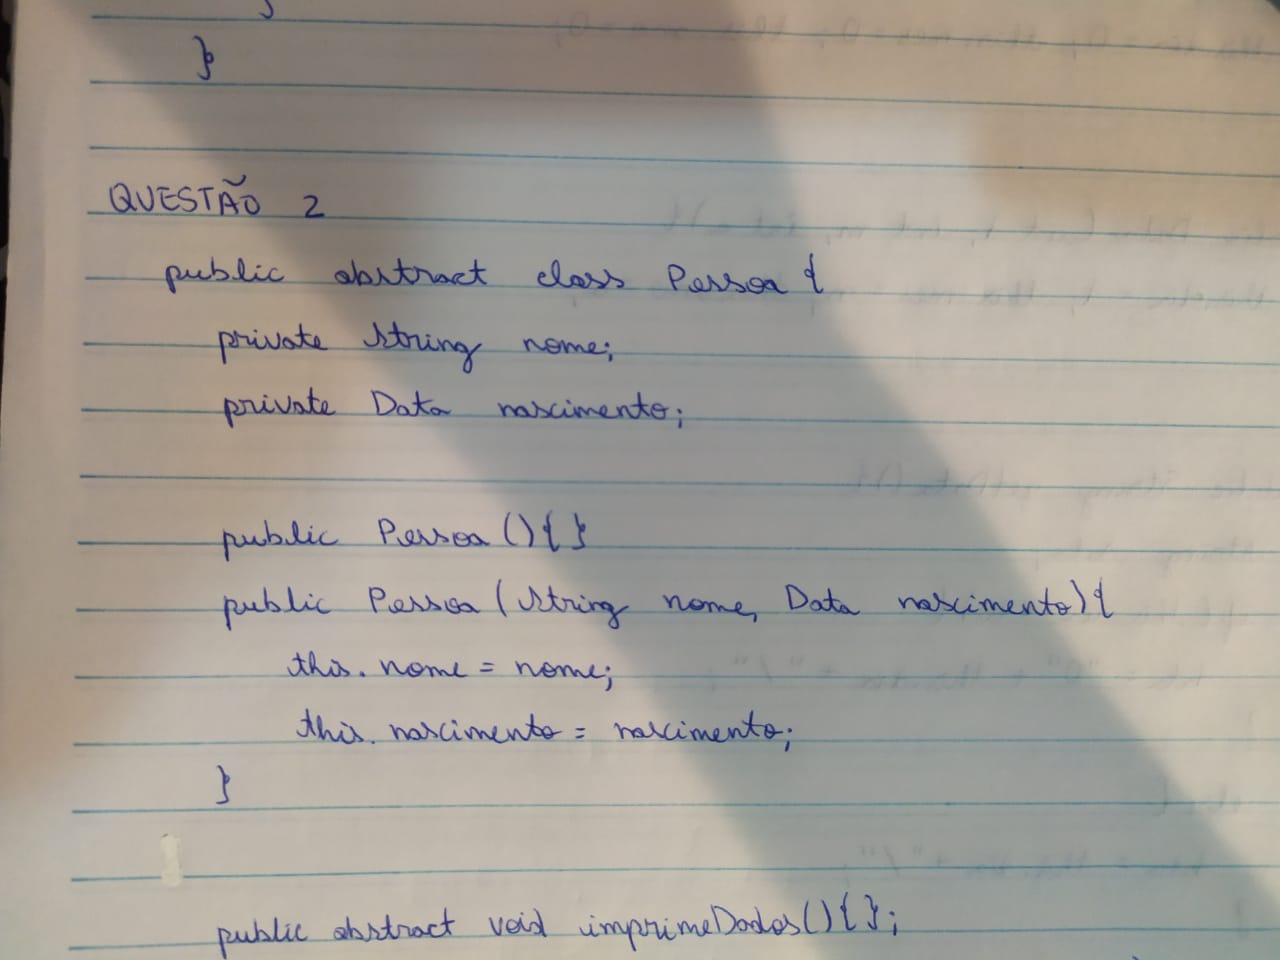 }
}
QUESTÃO 2
public abstract class Pessoa {
private String nome;
private Data nascimento;
public Pessoa () { }
public Pessoa (String nome, Data nascimento) {
this. nome = nome;
this. nascimento = nascimento;
}
public abstract void imprimeDados () { };